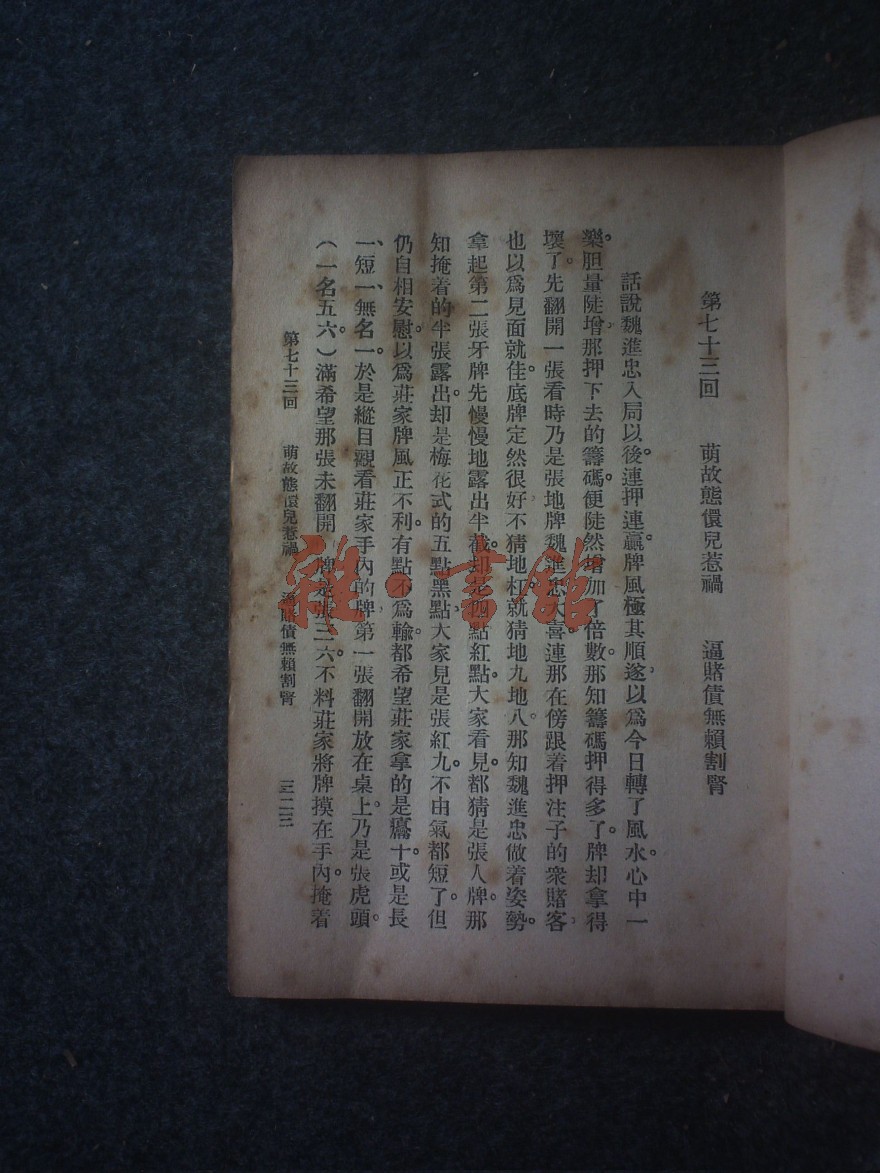 第七十三回 萌故態儇兒惹禍 逼賭債無賴割腎
話說魏進忠入局以後。連押連贏。牌風極其順遂。以爲今日轉了風水。心中一
樂。胆量陡增。那押下去的籌碼。便陡然增加了倍數。那知籌碼押得多了。牌却拿得
壞了。先翻開一張看時。乃是張地牌。魏進忠大喜。連那在傍跟着押注子的衆賭客。
也以爲見面就佳。底牌定然很好。不猜地杠。就猜地九地八。那知魏進忠做着姿勢。
拿起第二張牙牌。先慢慢地露出半截。却是四點紅點。大家看見。都猜是張人牌。那
知掩着的半張露出。却是梅花式的五點黑點。大家見是張紅九。不由氣都短了。但
仍自相安慰。以爲莊家牌風正不利。有點不爲輸。都希望莊家拿的是癟十。或是長
一、短一、無名一、於是縱目觀看莊家手內的牌。第一張翻開放在桌上。乃是張虎頭。
(一名五六。)滿希望那張未翻開 牌是張三六。不料莊家將牌摸在手內。掩着
第七十三回 萌故態儇兒惹禍 逼賭債無賴割腎 三二三
雜·書館